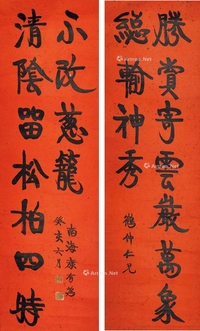 勝賞寄雲巖萬象
總輸神秀
鶴仲仁兄
清陰留松柏四時
不改蔥籠
癸亥六月
南海康有為